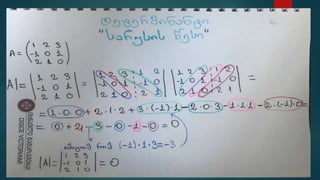 დეტერმინანტი
"სარუსის წესი"
A = ( 1 2 3
-1 0 1
2 1 0 )
|A| = | 1 2 3
-1 0 1
2 1 0 | = | 1 2 3 1 2
-1 0 1 -1 0
2 1 0 2 1 | - | 1 2 3 1 2
-1 0 1 -1 0
2 1 0 2 1 | =
= 1·0·0 + 2·1·2 + 3·(-1)·1 - 2·0·3 - 1·1·1 - 2·(-1)·0 =
= 0 + 4 - 3 - 0 - 1 - 0 = 0
(-1)·1·3 = -3
|A| = | 1 2 3
-1 0 1
2 1 0 | = 0